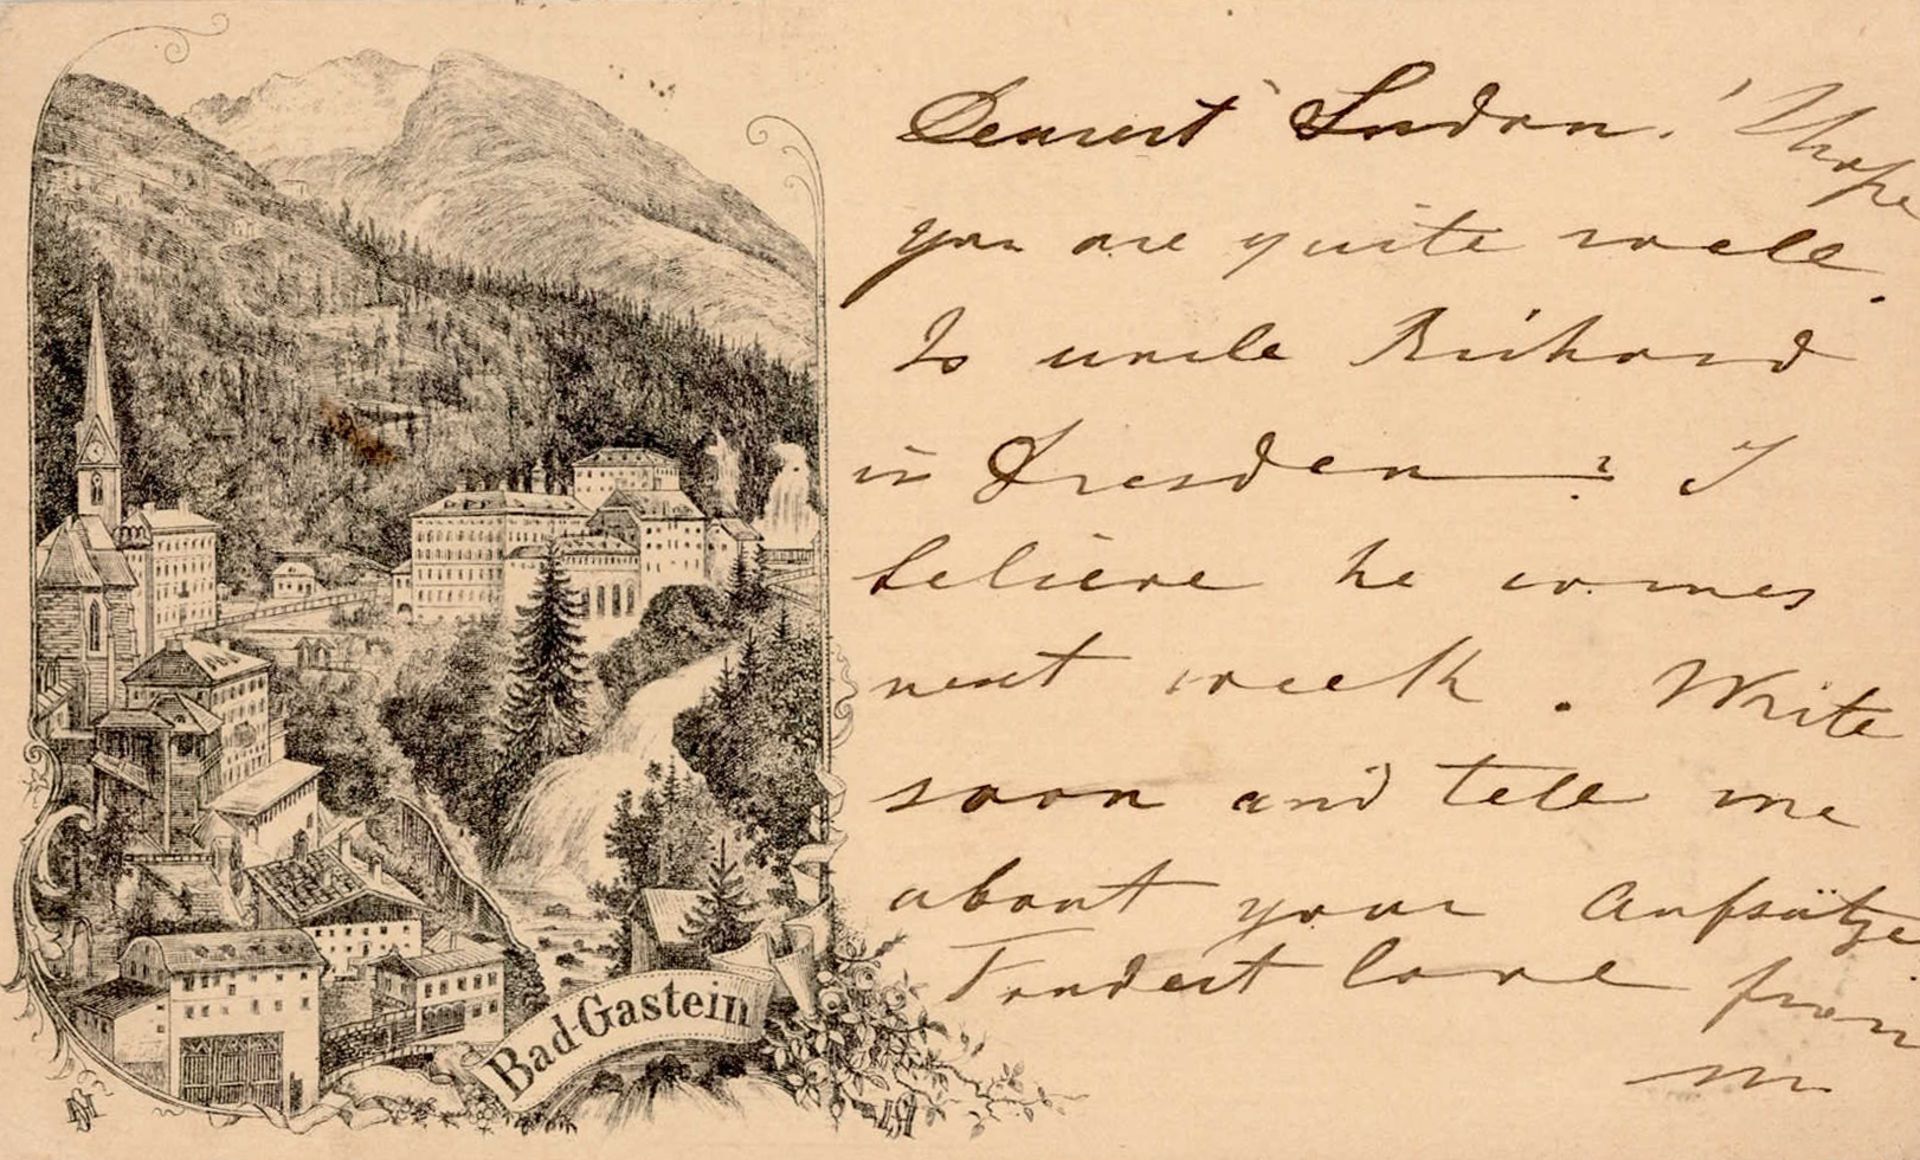 Bad-Gastein
Dearest Lndon. I hope
you are quite well.
Is uncle Richard
in Dresden? I
believe he comes
next week. Write
soon and tell me
about your Aufsätze
Fondest love from
M